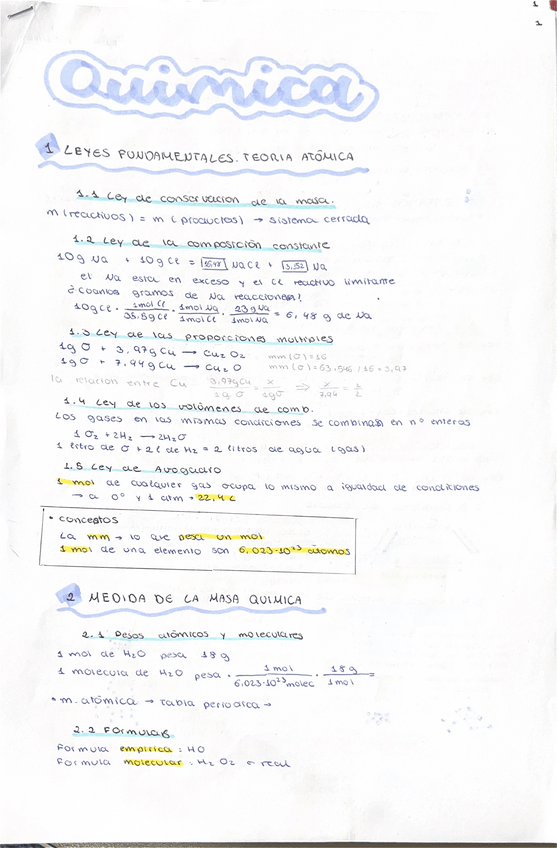 1
1
Quimica
1 LEYES FUNDAMENTALES. TEORIA ATÓMICA
1.1 Ley de conservacion de la masa.
m (reactivos) = m (productos) → sistema cerrada
1.2 Ley de la composición constante
10g Na + 10g Cl = 16'48 NaCl + 3,52 Na
el Na esta en exceso y el Cl reactivo limitante
¿Cuantos gramos de Na reaccionan?
10gCl · 1mol Cl / 35.5g Cl · 1mol Na / 1mol Cl · 23g Na / 1mol Na = 6,48 g de Na
1.3 Ley de las proporciones multiples
1g O + 3,97g Cu → Cu2O2 mm (O)=16
1g O + 7,94g Cu → Cu2O mm (O)=63.546 / 16 = 3,97
la relacion entre Cu 3,97gCu / 1g O = x / 1g O ⇒ x / 7,94 = 1 / 2
1.4 Ley de los volúmenes de comb.
Los gases en las mismas condiciones se combinan en nº enteros
1 O2 + 2H2 → 2H2O
1 litro de O + 2 l de H2 = 2 litros de agua (gas)
1.5 Ley de Avogadro
1 mol de cualquier gas ocupa lo mismo a igualdad de condiciones
→ a 0º y 1 atm → 22,4 L
• conceptos
La mm → lo que pesa un mol
1 mol de una elemento son 6,023·10²³ átomos
2 MEDIDA DE LA MASA QUIMICA
2.1 Pesos atómicos y moleculares
1 mol de H2O pesa 18g
1 molecula de H2O pesa · 1mol / 6.023·10²³ molec · 18g / 1mol =
• m. atómica → tabla periodica →
2.2 Formulas
Formula empírica : HO
Formula molecular : H2O2 ← real